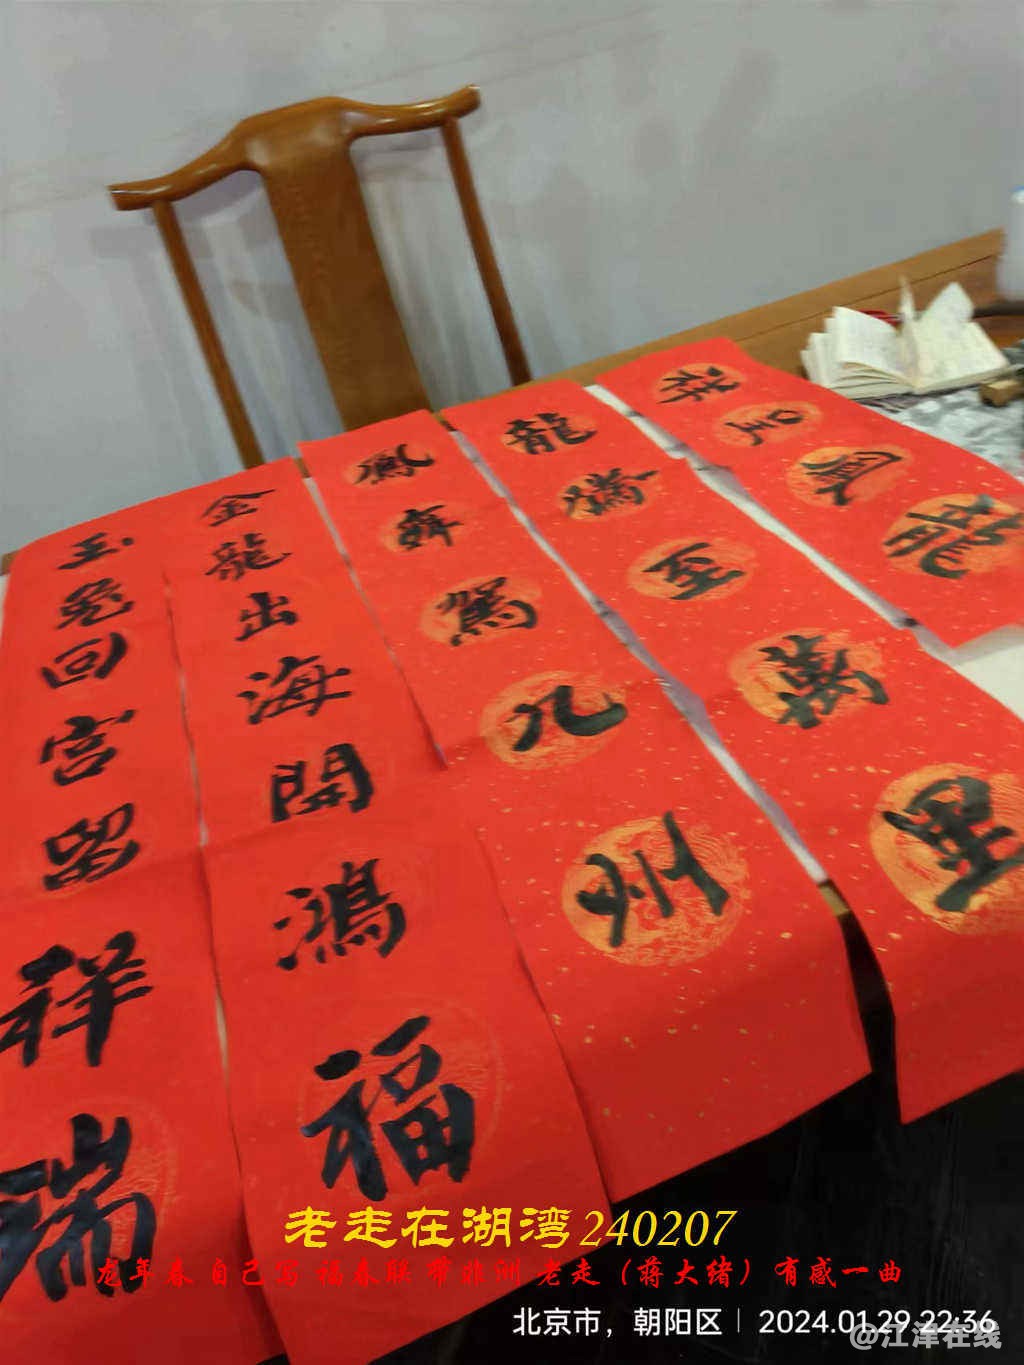 龍鳳呈祥
龍騰至萬里
鳳舞駕九州
金龍出海開鴻福
玉兔回宫留祥瑞
老走在湖湾240207
龙年春 自己写 福春联 带非洲 老走（蒋大绪）有感一曲
北京市，朝阳区 | 2024.01.29 22:36
@江泽在线